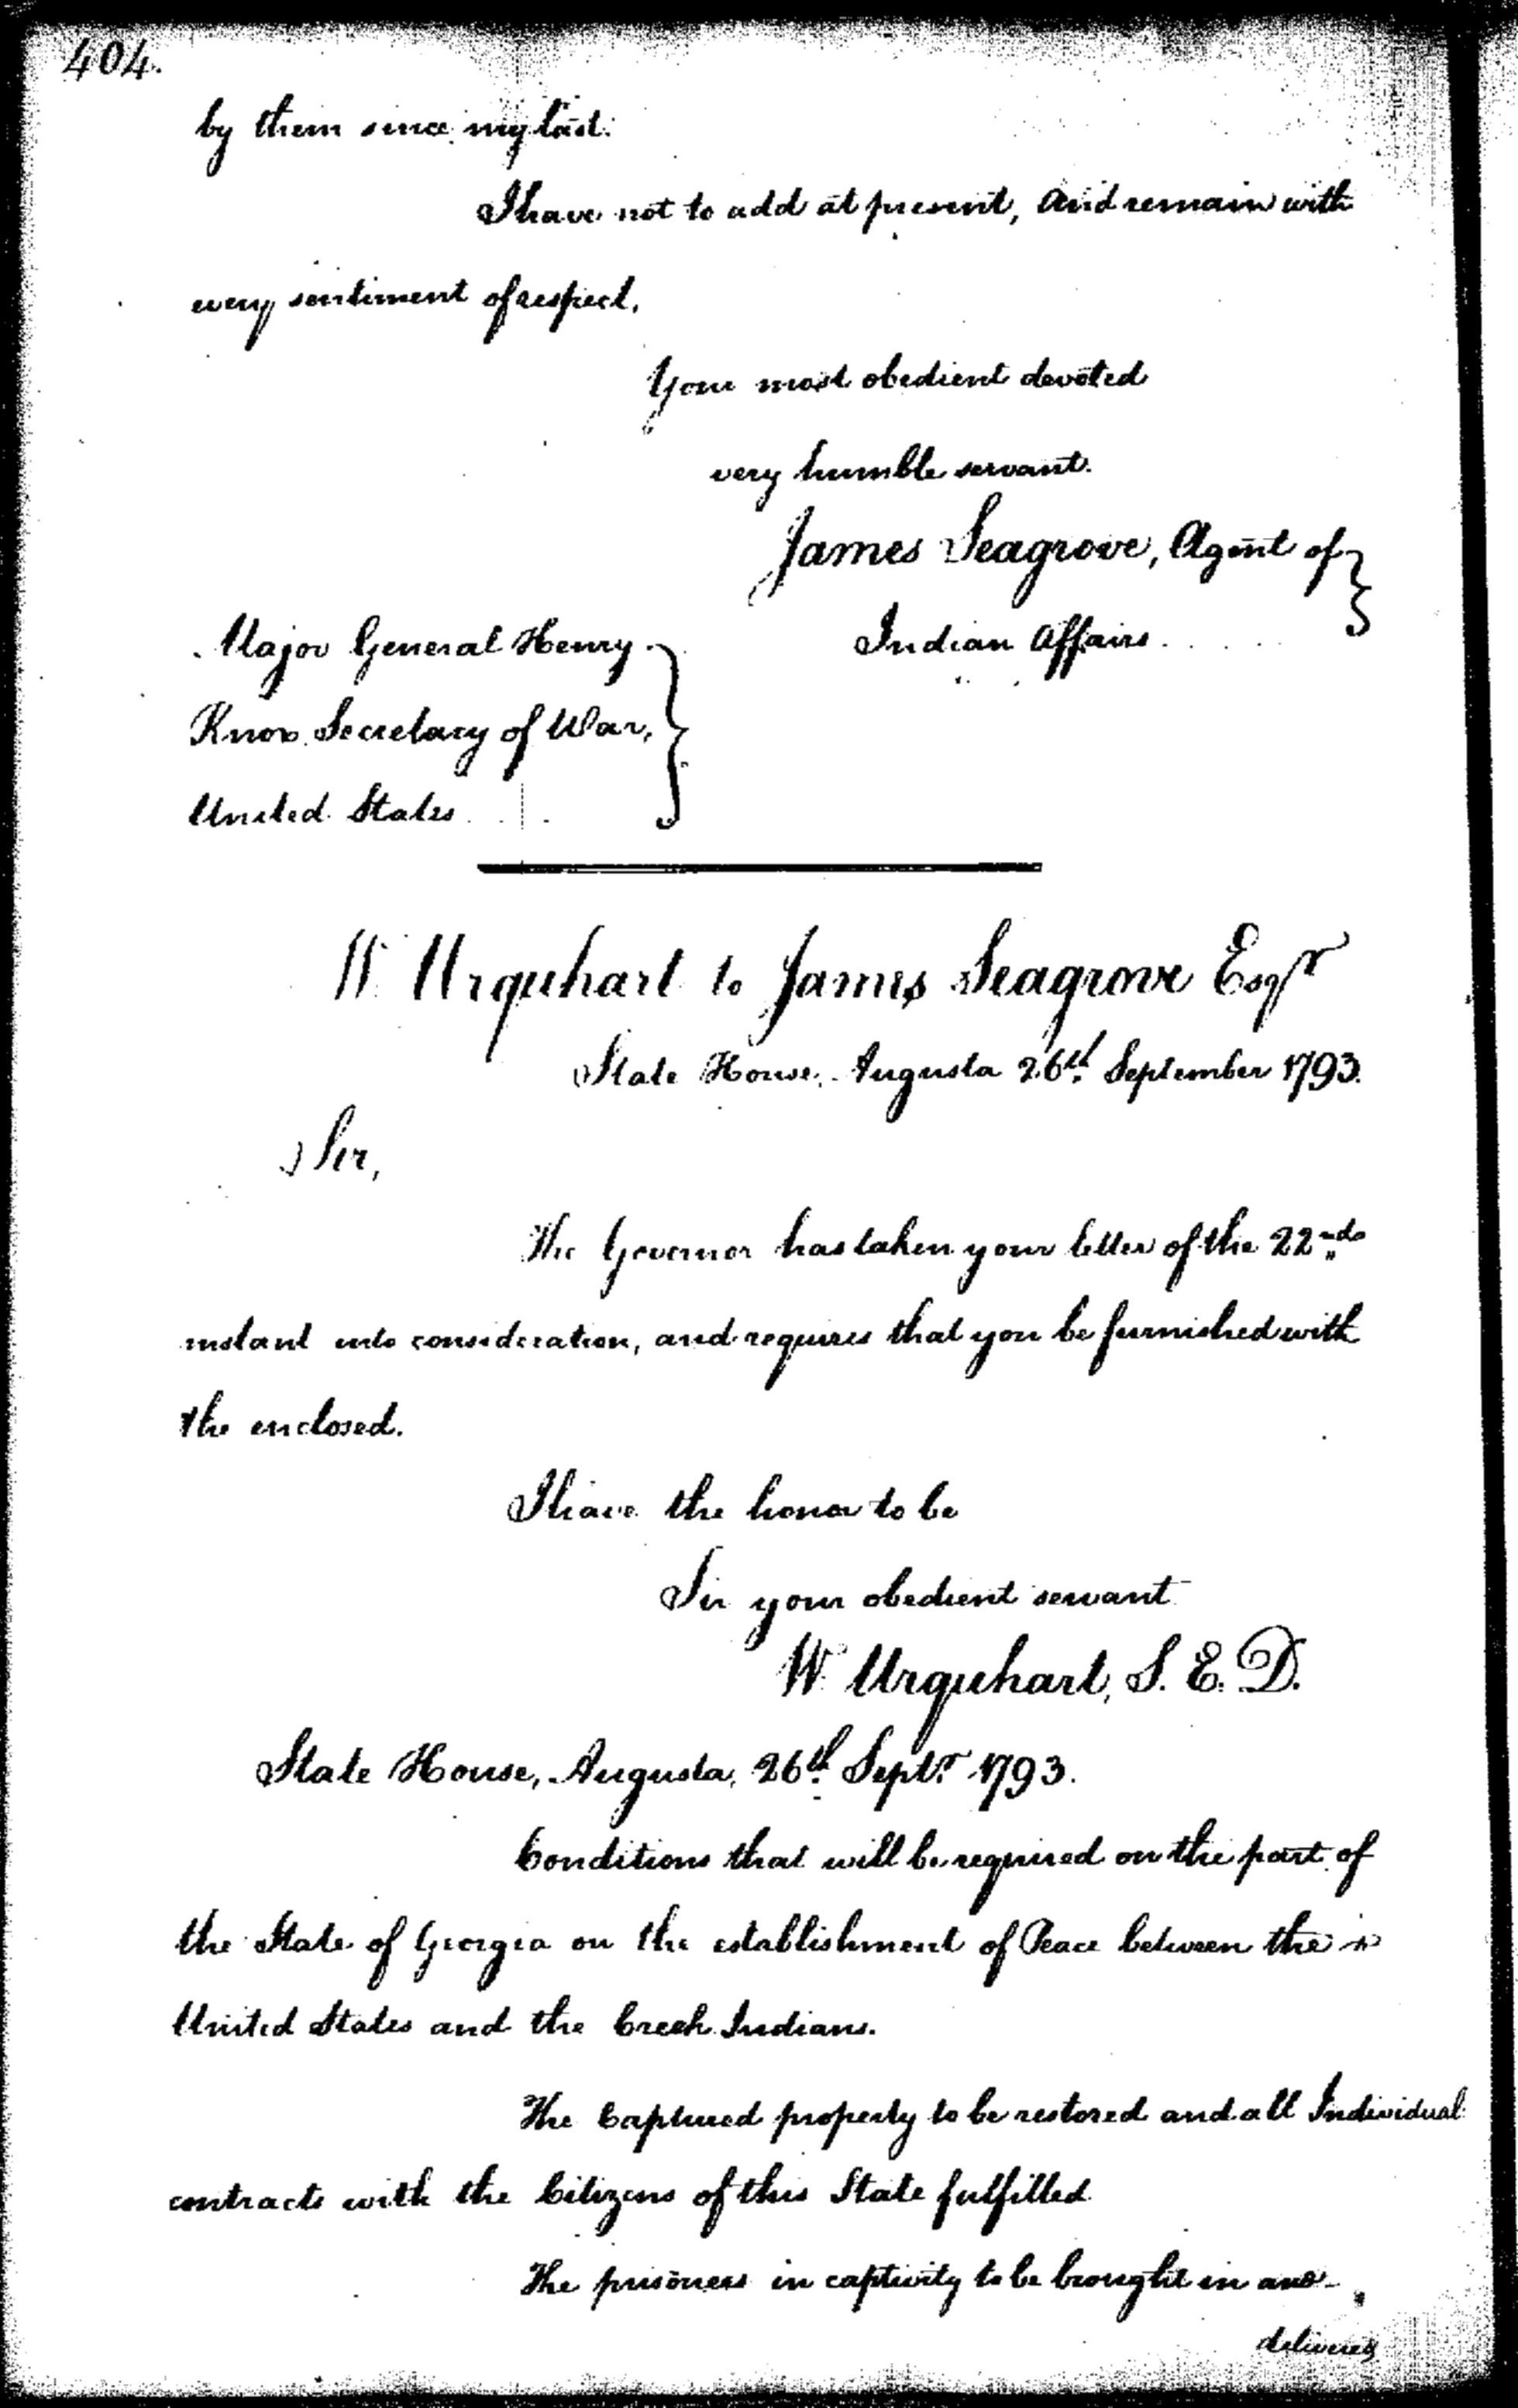 404.
by them since my last.
I have not to add at present, and remain with
every sentiment of respect,
Your most obedient devoted
very humble servant.
James Seagrove, Agent of
Indian Affairs.
Major General Henry
Knox Secretary of War,
United States
W. Urquhart to James Seagrove Esqr
State House, Augusta 26th September 1793.
Sir,
The Governor has taken your letter of the 22nd
instant into consideration, and requires that you be furnished with
the enclosed.
I have the honor to be
Sir your obedient servant
W. Urquhart, S. E. D.
State House, Augusta, 26th Septr 1793.
Conditions that will be required on the part of
the State of Georgia on the establishment of Peace between the
United States and the Creek Indians.
The Captured property to be restored and all Individual
contracts with the Citizens of this State fulfilled
The prisoners in captivity to be brought in and
delivered